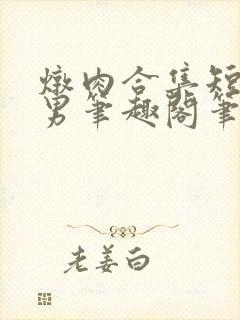 燉肉合集短
男笔趣阁笔
老姜白